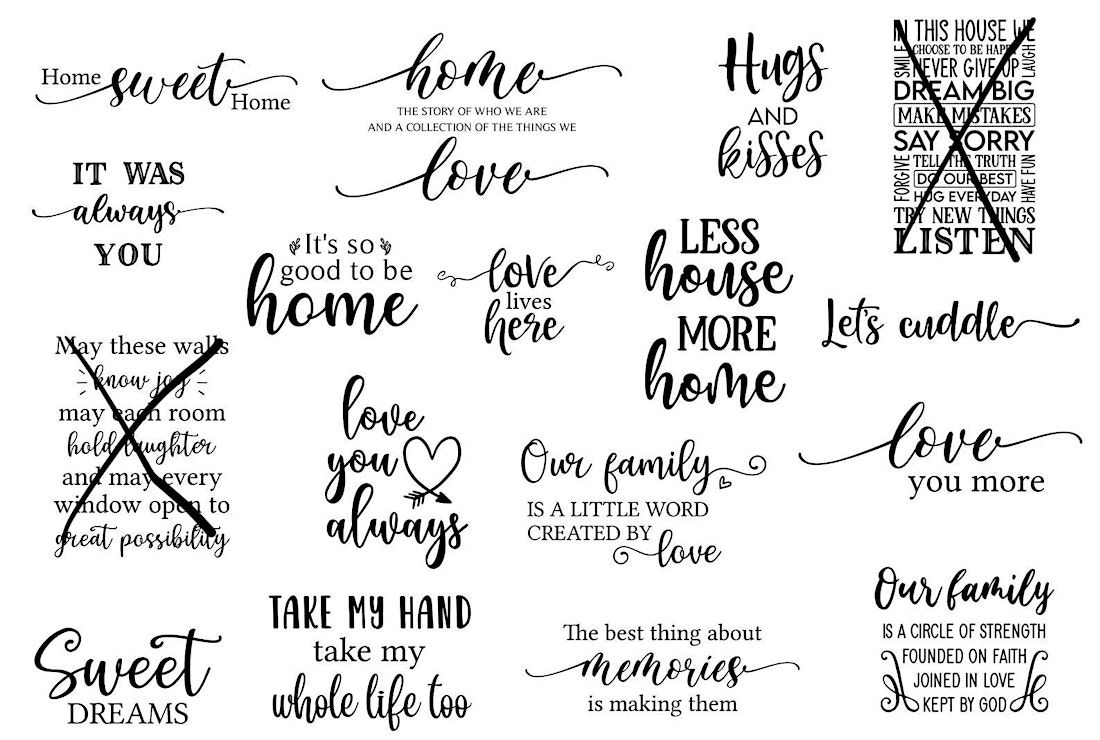 Home sweet Home
home
THE STORY OF WHO WE ARE
AND A COLLECTION OF THE THINGS WE
love
Hugs
AND
kisses
IN THIS HOUSE WE
SMILE
CHOOSE TO BE HAPPY
NEVER GIVE UP
LAUGH
DREAM BIG
MAKE MISTAKES
SAY SORRY
FORGIVE
TELL THE TRUTH
DO OUR BEST
HUG EVERYDAY
HAVE FUN
TRY NEW THINGS
LISTEN
IT WAS
always
YOU
It's so
good to be
home
love
lives
here
LESS
house
MORE
home
Let's cuddle
May these walls
know joy
may each room
hold laughter
and may every
window open to
great possibility
love
you
always
Our family
IS A LITTLE WORD
CREATED BY
love
love
you more
Sweet
DREAMS
TAKE MY HAND
take my
whole life too
The best thing about
memories
is making them
Our family
IS A CIRCLE OF STRENGTH
FOUNDED ON FAITH
JOINED IN LOVE
KEPT BY GOD